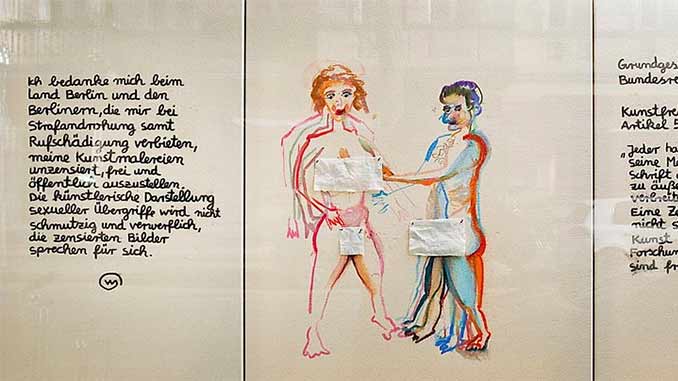 Ich bedanke mich beim
Land Berlin und den
Berlinern, die mir bei
Strafandrohung samt
Rufschädigung verbieten,
meine Kunstmalereien
unzensiert, frei und
öffentlich auszustellen.
Die künstlerische Darstellung
sexueller Übergriffe wird nicht
schmutzig und verwerflich,
die zensierten Bilder
sprechen für sich.
Grundges
Bundesre
Kunstfre
Artikel 5
"Jeder ha
seine Me
Schrift
zu äuße
verbreit
Eine Ze
nicht s
Kunst
Forschun
sind fr